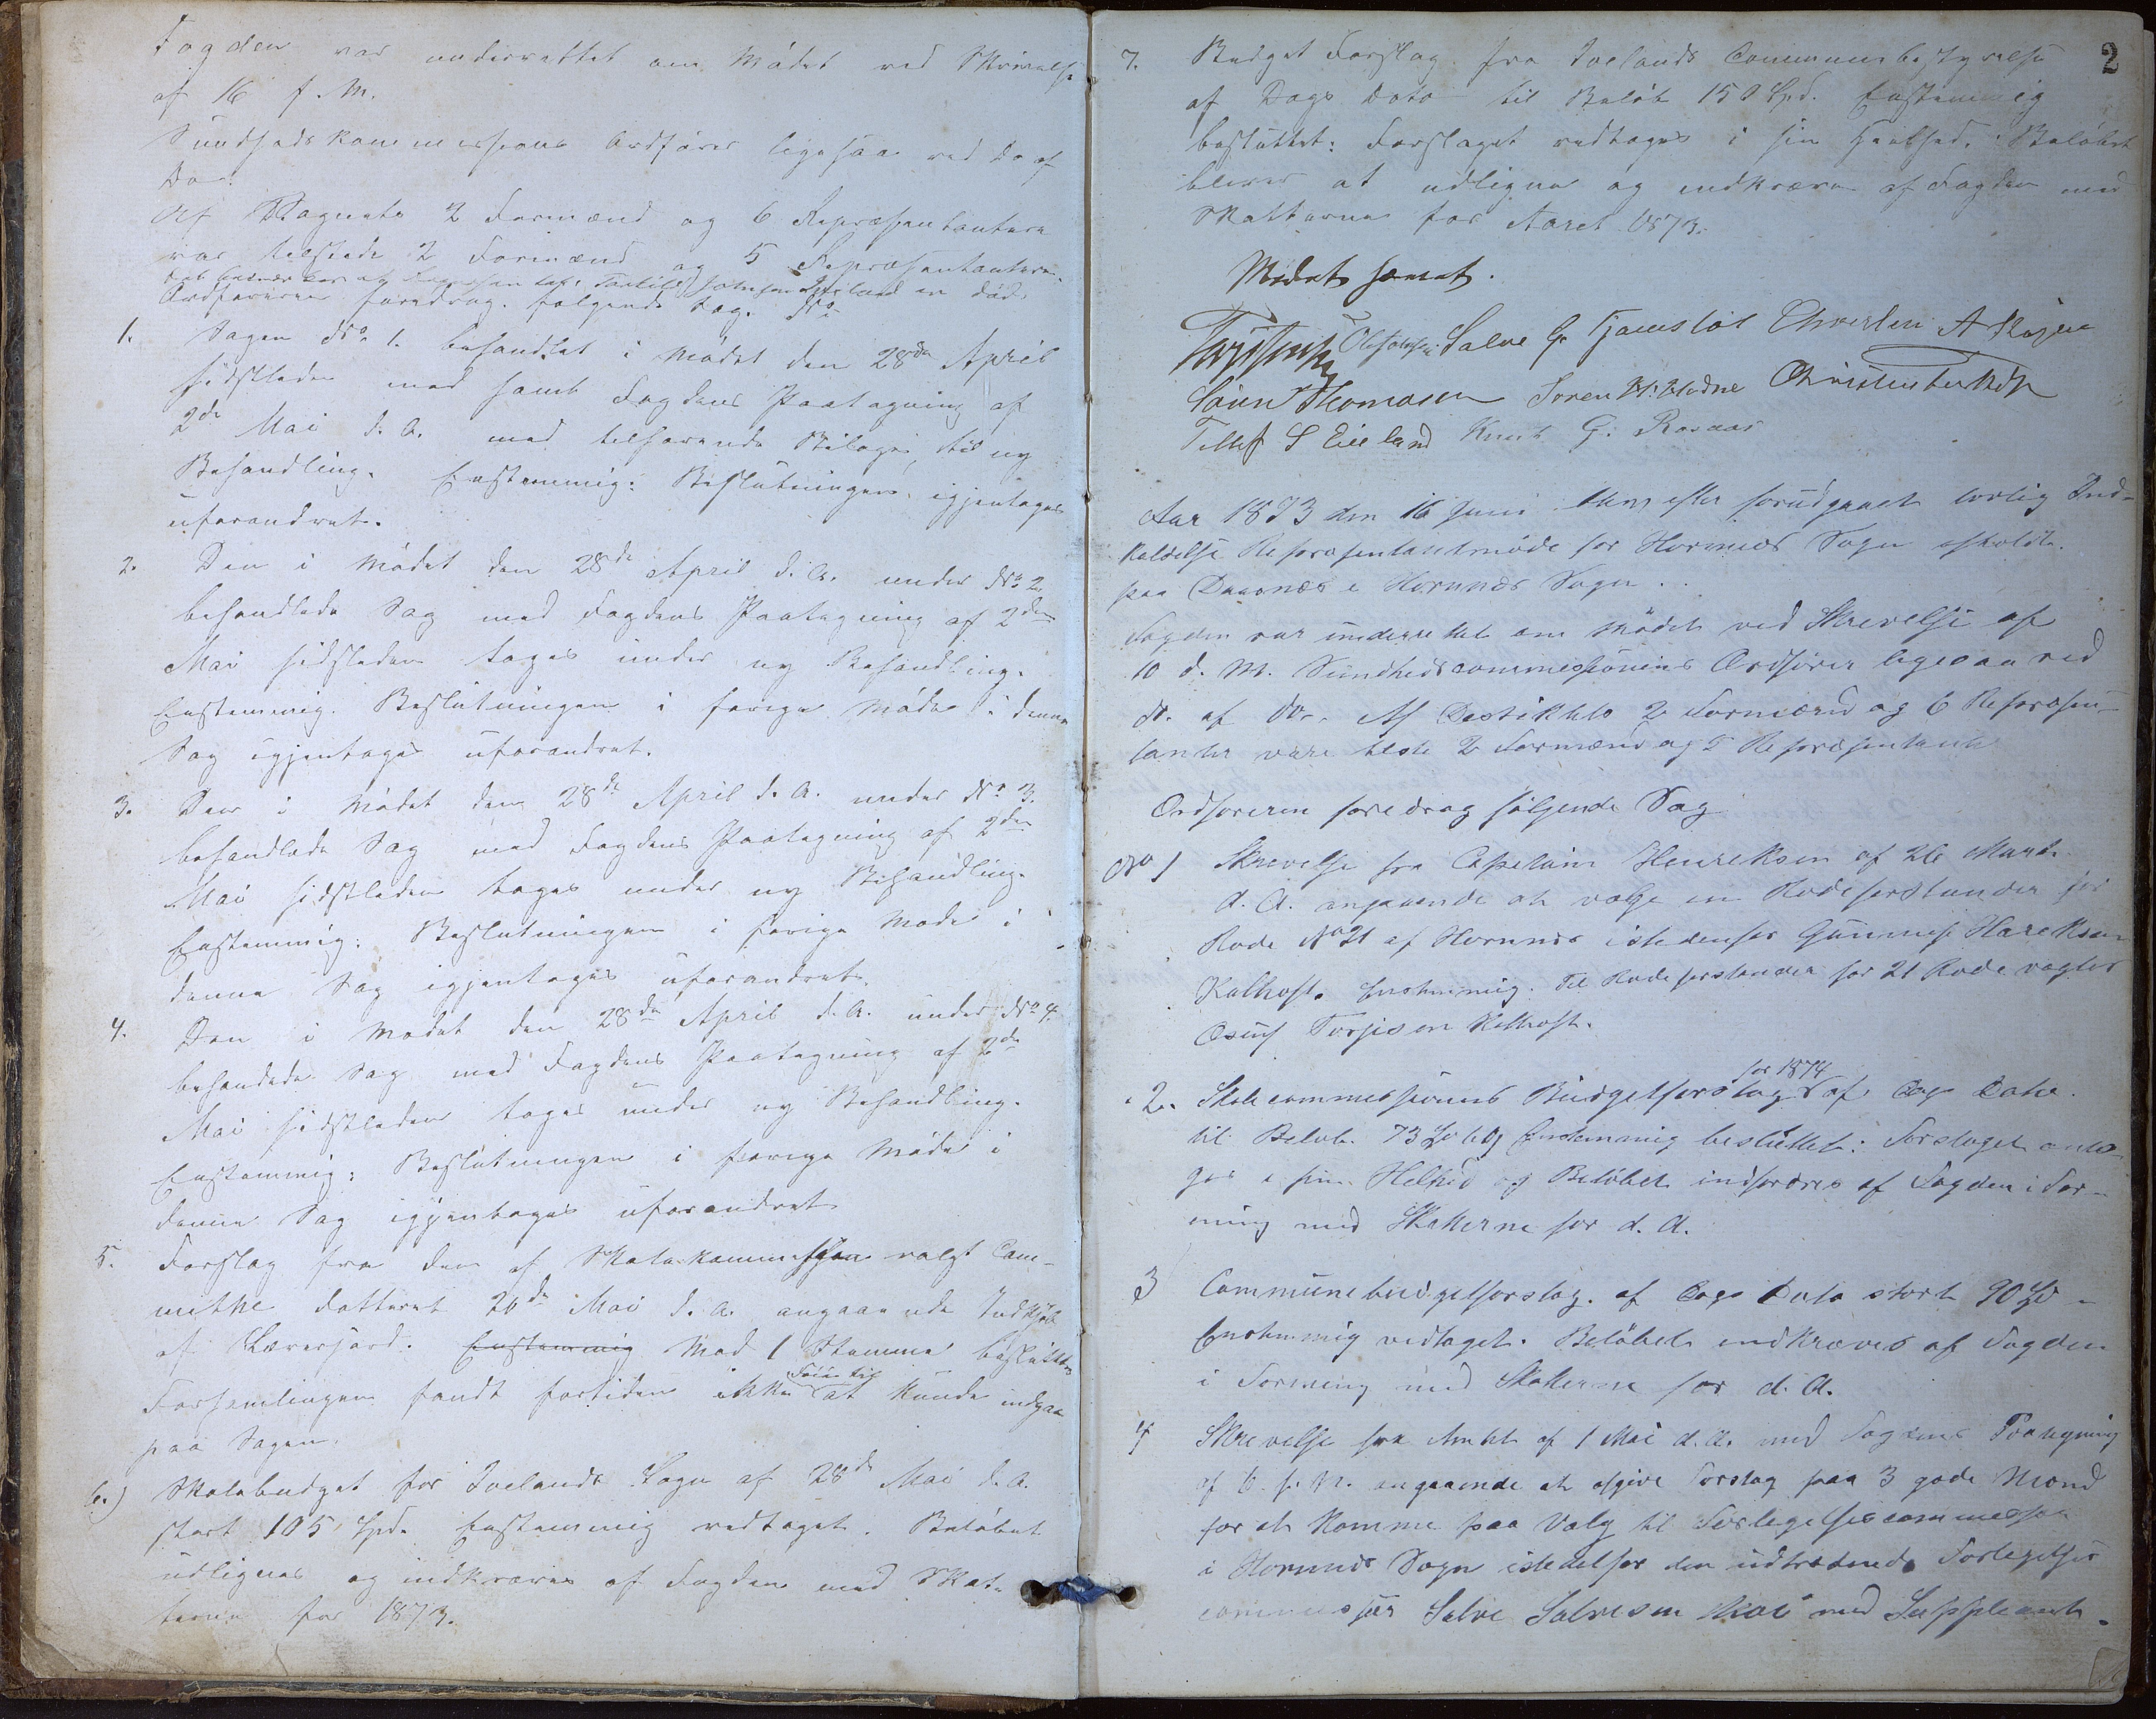 Fogden var underrettet om Mødet ved Skrivelse
af 16 f. M.
Sundhedskommissions Ordfører ligesaa ved Do af
Do.
Af Sognets 2 Formænd og 6 Repræsentantere
var tilstede 2 Formænd og 5 Repræsentantere.
Ordføreren foredrog følgende Sag. No
1. Sagen No 1. behandlet i Mødet den 28de April
sidstleden med samt Fogdens Paategning af
2de Mai d. A. med tilhørende Bilage, til ny
Behandling. Enstemmig: Beslutningen igjentages
uforandret.
2. Den i Mødet den 28de April d. A. under No 2
behandlede Sag med Fogdens Paategning af 2den
Mai sidstleden toges under ny Behandling.
Enstemmig. Beslutningen i forige Møde i denne
Sag igjentages uforandret.
3. Den i Mødet den 28de April d. A. under No 3.
behandlede Sag med Fogdens Paategning af 2den
Mai sidstleden toges under ny Behandling.
Enstemmig: Beslutningen i forige Møde i
denne Sag igjentages uforandret.
4. Den i Mødet den 28de April d. A. under No 4.
behandede Sag med Fogdens Paategning af 2de
Mai sidstleden toges under ny Behandling.
Enstemmig: Beslutningen i forrige Møde i
denne Sag igjentages uforandret
5. Forslag fra den af Skolekommission valgt Com-
mithe datteret 26de Mai d. A. angaaende Indkjøb
af Lærerjord. Enstemmig Med 1 Stemme besluttet
Forsamlingen fandt fortiden ikke Føie til at kunde indgaa
paa Sagen.
6.) Skolebudget for Ivelands Sogn af 28de Mai d. A.
stort 105 Spd. Enstemmig vedtaget. Beløbet
udlignes og indkræves af Fogden med Skat-
terne for 1873.
2
7. Budget Forslag fra Ivelands Communebestyrelse
af Dags Dato til Beløb 150 Spd. Enstemmig
besluttet: Forslaget vedtages i sin Heelhed. Beløbet
bliver at udligne og indkræve af Fogden med
Skatterne for Aaret 1873.
Mødet hævet.
Salve G. Tjomslöl Christen A
Søren Thomasen Søren Christen
Tellef S Eieland Knut G. Rosaas
Aar 1873 den 16 Juni blev efter forudgaaet lovlig Ind-
kaldelse Repræsentantmöde for Hornnes Sogn afholdt
paa Daasnes i Hornnes Sogn.
Fogden var underrettet om Mödet ved Skrevelse af
10 d. M. Sundhedscommissionens Ordförer ligesaa ved
do. af do. Af Destriktets 2 Formænd og 6 Repræsen-
tanter vare tilste 2 Formænd og 5 Repræsentanter
Ordföreren foredrog följende Sag
No 1 Skrevelse fra Capetain Henreksen af 26 Marts
d. A. angaaende at vælge en Rodeforstander for
Rode No 21 af Hornnes istedenfor Gunnuf Hareksen
Kalhoft. Enstemmig. Til Rodeforstander for 21 Rode vægles
Osuf Torjisen Kalhoft.
2. Skolecommessionens Budgetforslag for 1874 af Dags Dato
til Belöb 73 Enstemmig besluttet: Forslaget anta-
ges i sin Helhed og Belöbet indfordres af Fogden i For-
ning med Skatterne for d. A.
3 Communebudgetforslag af Dags Dato stort 90
Enstemmig vedtaget. Belöbet indkræves af Fogden
i Forening med Skatterne for d. A.
4 Skrevelse fra Amtet af 1 Mai d. A. med Fogdens Paategning
af 6 s. M. angaaende at afgive Forslag paa 3 gode Mænd
for at komme paa Valg til Forlegelsescommessær
i Hornnes Sogn istedetfor den udtrædende Forlegelses
commessær Salve Salvesen Moi med Suppleant.